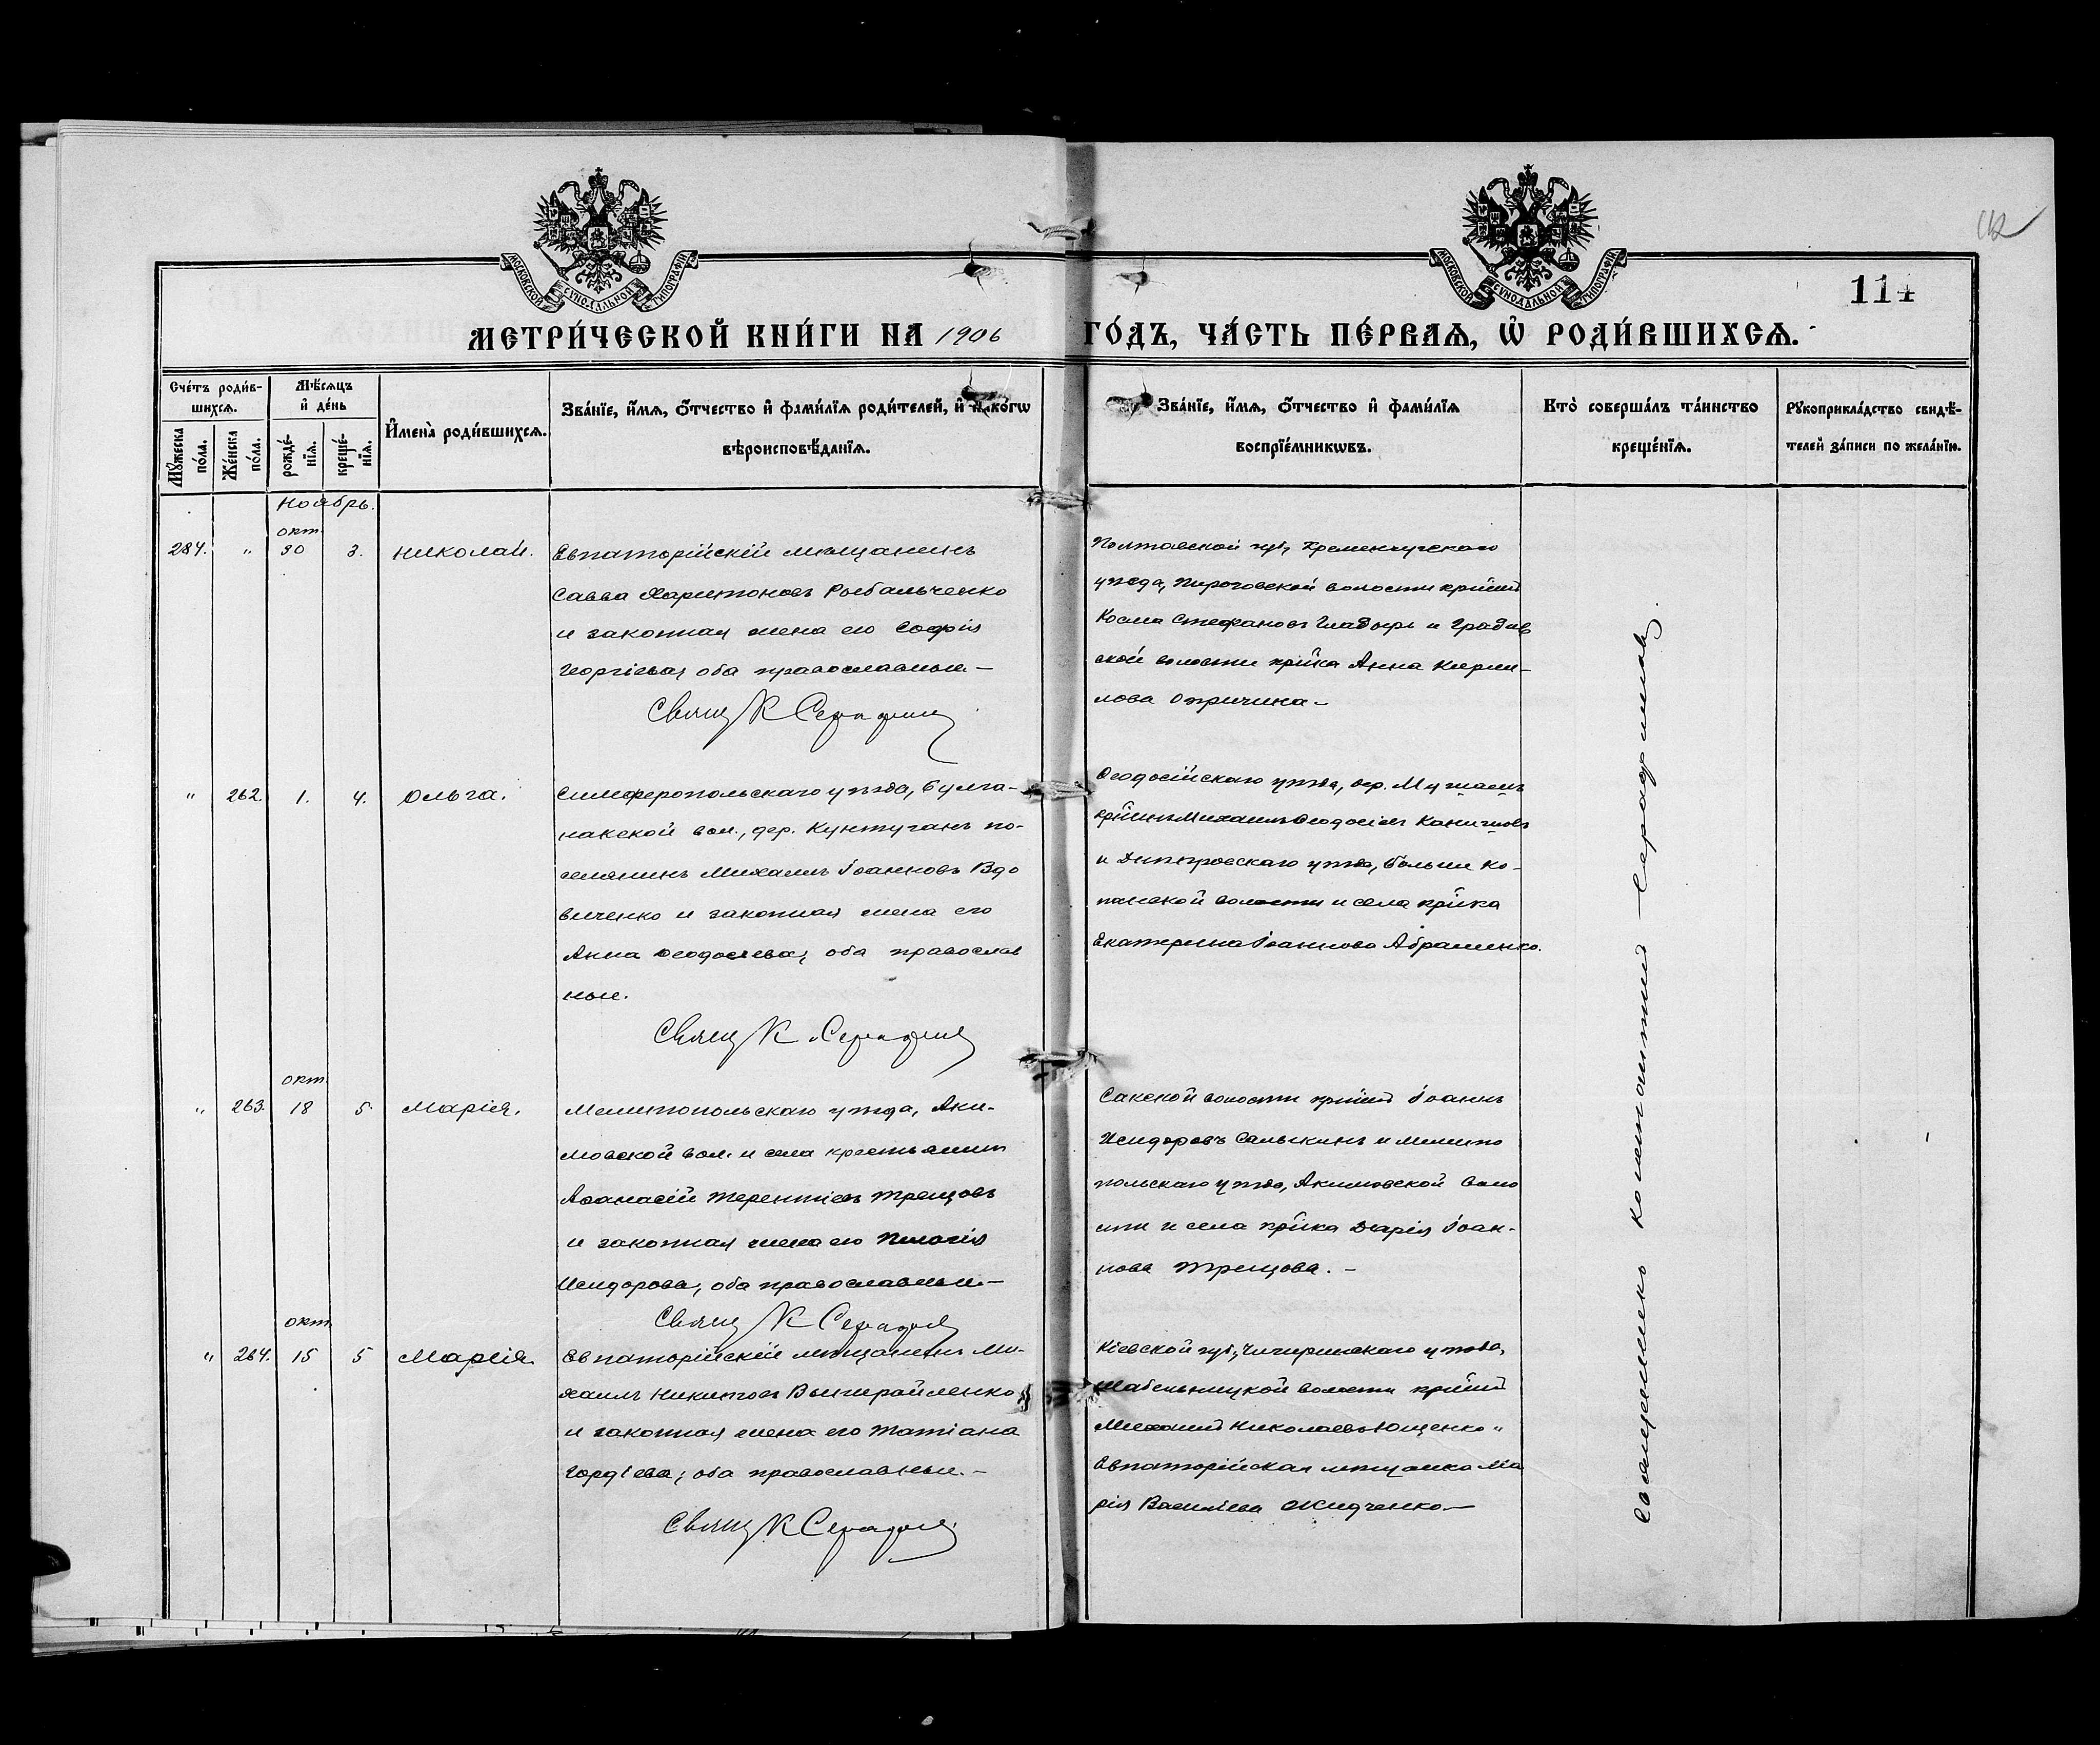 МОСКОВСКОЙ СѴНОДАЛЬНОЙ ТИПОГРАФІИ
МОСКОВСКОЙ СѴНОДАЛЬНОЙ ТИПОГРАФІИ
112
114
МЕТРИ́ЧЕСКОЙ КНИ́ГИ НА 1906 ГО́ДЪ, ЧА́СТЬ ПЕ́РВАѦ, Ѡ҆ РОДИ́ВШИХСѦ.
Сче́тъ роди́в-
шихсѧ.
Мѣ́сѧцъ
и҆ де́нь
Мꙋ́жеска по́ла.
Же́нска по́ла.
рожде́-
нїѧ.
креще́-
нїѧ.
И҆мена̀ роди́вшихсѧ.
Зва́нїе, и҆́мѧ, ѻ҆́тчество и҆ фами́лїѧ роди́телей, и҆ како́гѡ
вѣроисповѣ́данїѧ.
Зва́нїе, и҆́мѧ, ѻ҆́тчество и҆ фами́лїѧ
воспрїе́мникѡвъ.
Кто̀ соверша́лъ та́инство
креще́нїѧ.
Рꙋкоприкла́дство свидѣ́-
телей за́писи по жела́нїю.
Ноябрь.
окт.
284. " 30 3. Николай.
Евпаторійскій мѣщанинъ
Савва Харитоновъ Рыбальченко
и законная жена его Софія
Георгіева, оба православные.—
Свящ К Серафим
Полтавской губ, Кременчугскаго
уѣзда, Пироговской волости кр-нин
Косма Стефановъ Гладырь и Градиж
ской волости кр-нка Анна Кирил-
лова Опричина—
" 262. 1. 4. Ольга.
Симферопольскаго уѣзда, Булга-
накской вол., дер. Кунтуганъ по-
селянинъ Михаилъ Іоанновъ Вдо
виченко и законная жена его
Анна Ѳеодосіева, оба православ
ные.
Свящ К Серафим
Ѳеодосійскаго уѣзда, дер.
Михаилъ Ѳеодосіевъ
и Днѣпровскаго уѣзда, Больше Ко-
панской волости и села кр-нка
Екатерина Іоаннова Абраменко.
окт
" 263. 18 5. Марія.
Мелитопольскаго уѣзда, Аки-
мовской вол. и села крестьянин
Аѳанасій Терентіевъ Трещовъ
и законная жена его Пелагія
Исидорова, оба православные—
Свящ К Серафим
Сакской волости кр-нин Іоаннъ
Исидоровъ Салыкинъ и Мелито
польскаго уѣзда, Акимовской воло
сти и села кр-нка Дарія Іоан-
нова Трещова.—
окт
" 264. 15 5 Марія.
Евпаторійскій мѣщанинъ Ми-
хаилъ Никитовъ
и законная жена его Татіана
Гордіева, оба православные.—
Свящ К Серафим
Кіевской губ, Чигиринскаго уѣзда,
Шабельницкой волости кр-нин
Николаевъ Ющенко и
Евпаторійская мѣщанка Ма
рія Васильева Жидченко—
Священникъ Серафимовъ.